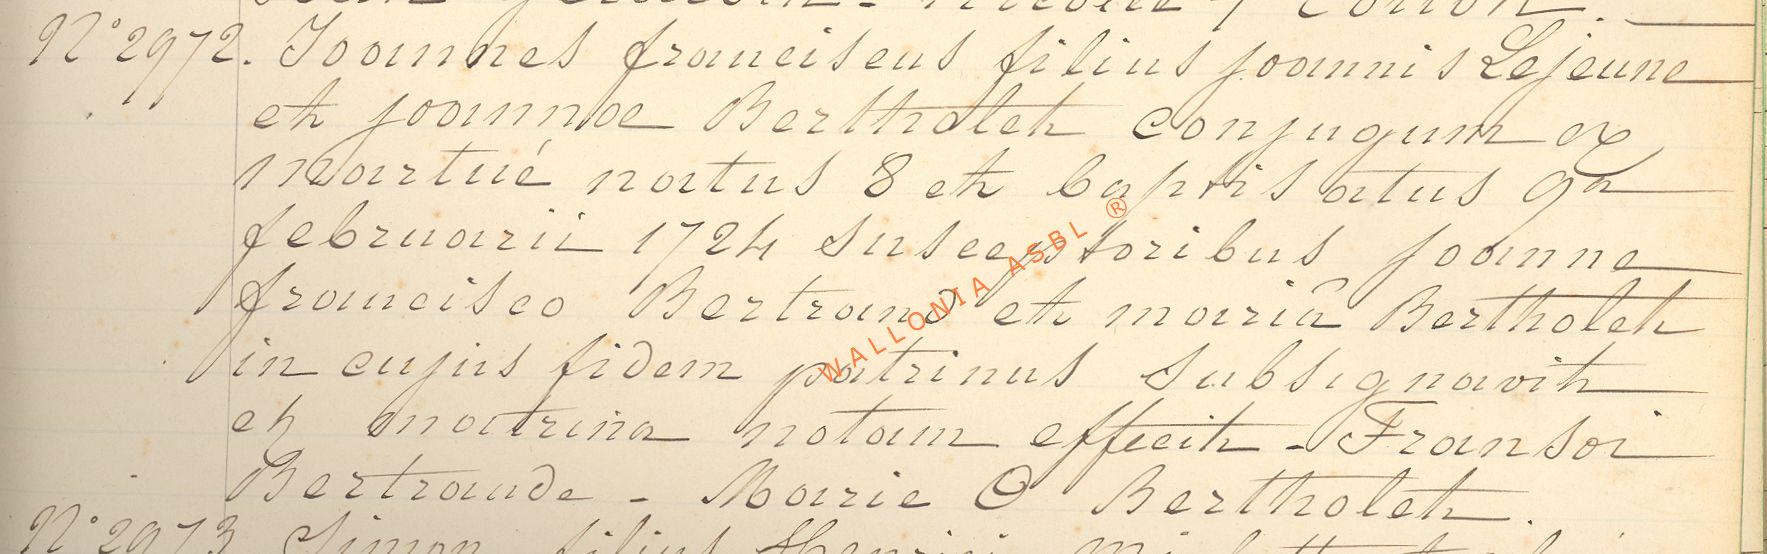 N° 2972. Joannes franciscus filius joannis Lejeune
et joannoe Bertholet conjugum ex
martué natus 8 et baptisatus 9a
februarii 1724 susceptoribus joanne
francisco Bertrand et mariâ Bertholet
in cujus fidem patrinus subsignavit
et matrina notam effecit - Fransoi
Bertrande - Marie O Bertholet.
N° 2973 Simon filius Henrici
WALLONIA ASBL ®